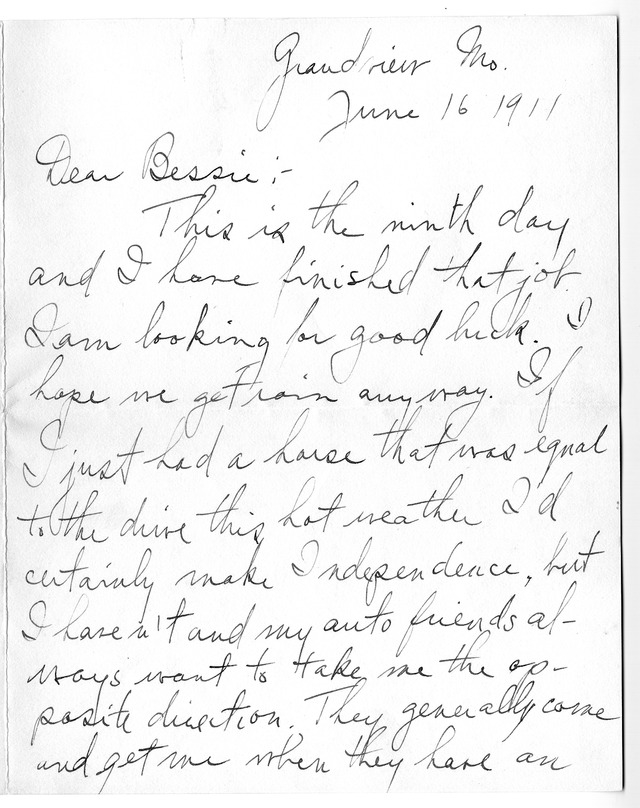 Grandview Mo.
June 16 1911
Dear Bessie :-
This is the ninth day
and I have finished that job.
I am looking for good luck. I
hope we get rain anyway. If
I just had a horse that was equal
to the drive this hot weather I'd
certainly make Independence, but
I haven't and my auto friends al-
ways want to take me the op-
posite direction. They generally come
and get me when they have an